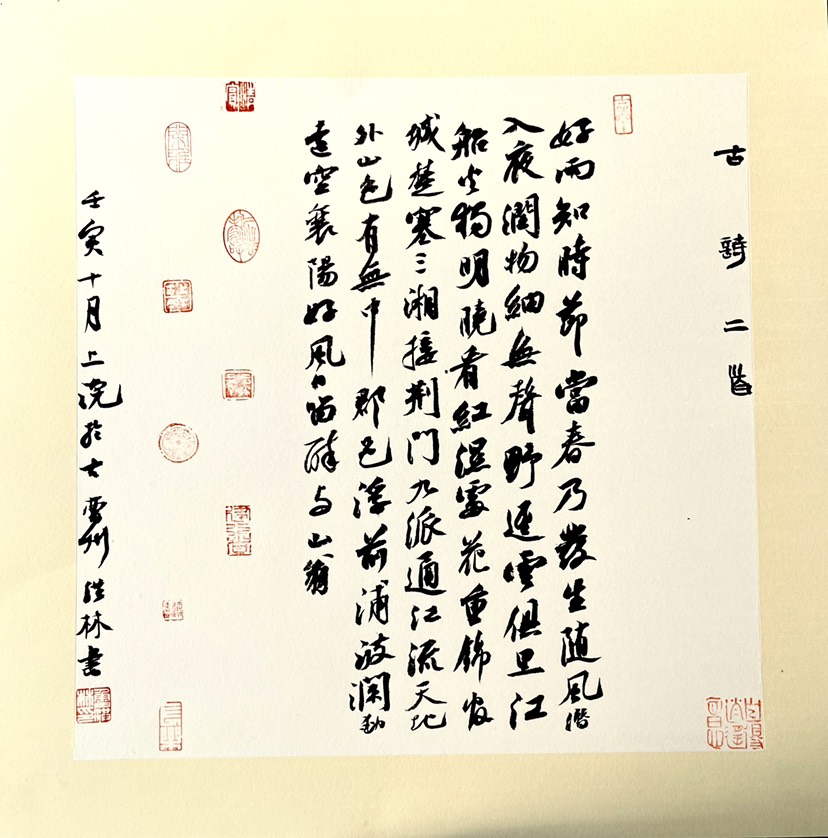 古詩二首
好雨知時節當春乃發生随風潛
入夜潤物細無聲野逕雲俱黑江
船火獨明曉看紅濕處花重錦官
城楚塞三湘接荆門九派通江流天地
外山色有無中郡邑浮前浦波瀾動
遠空襄陽好風日留醉与山翁
壬寅十月上浣於古雷州林書